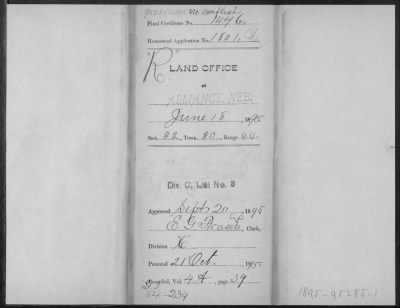 No conflict
Final Certificate No. 1496.
Homestead Application No. 1801.
"R"
LAND OFFICE
AT
ALLIANCE, NEB.
June 18, 1895
Sect. 32, Town. 30, Range 44.
Div. C, List No. 8
Approved Sept 20, 1895
E. G. Clerk,
Division C
Patented 21 Oct. 1895.
Recorded, Vol. 4, page 239
1895-95288-1